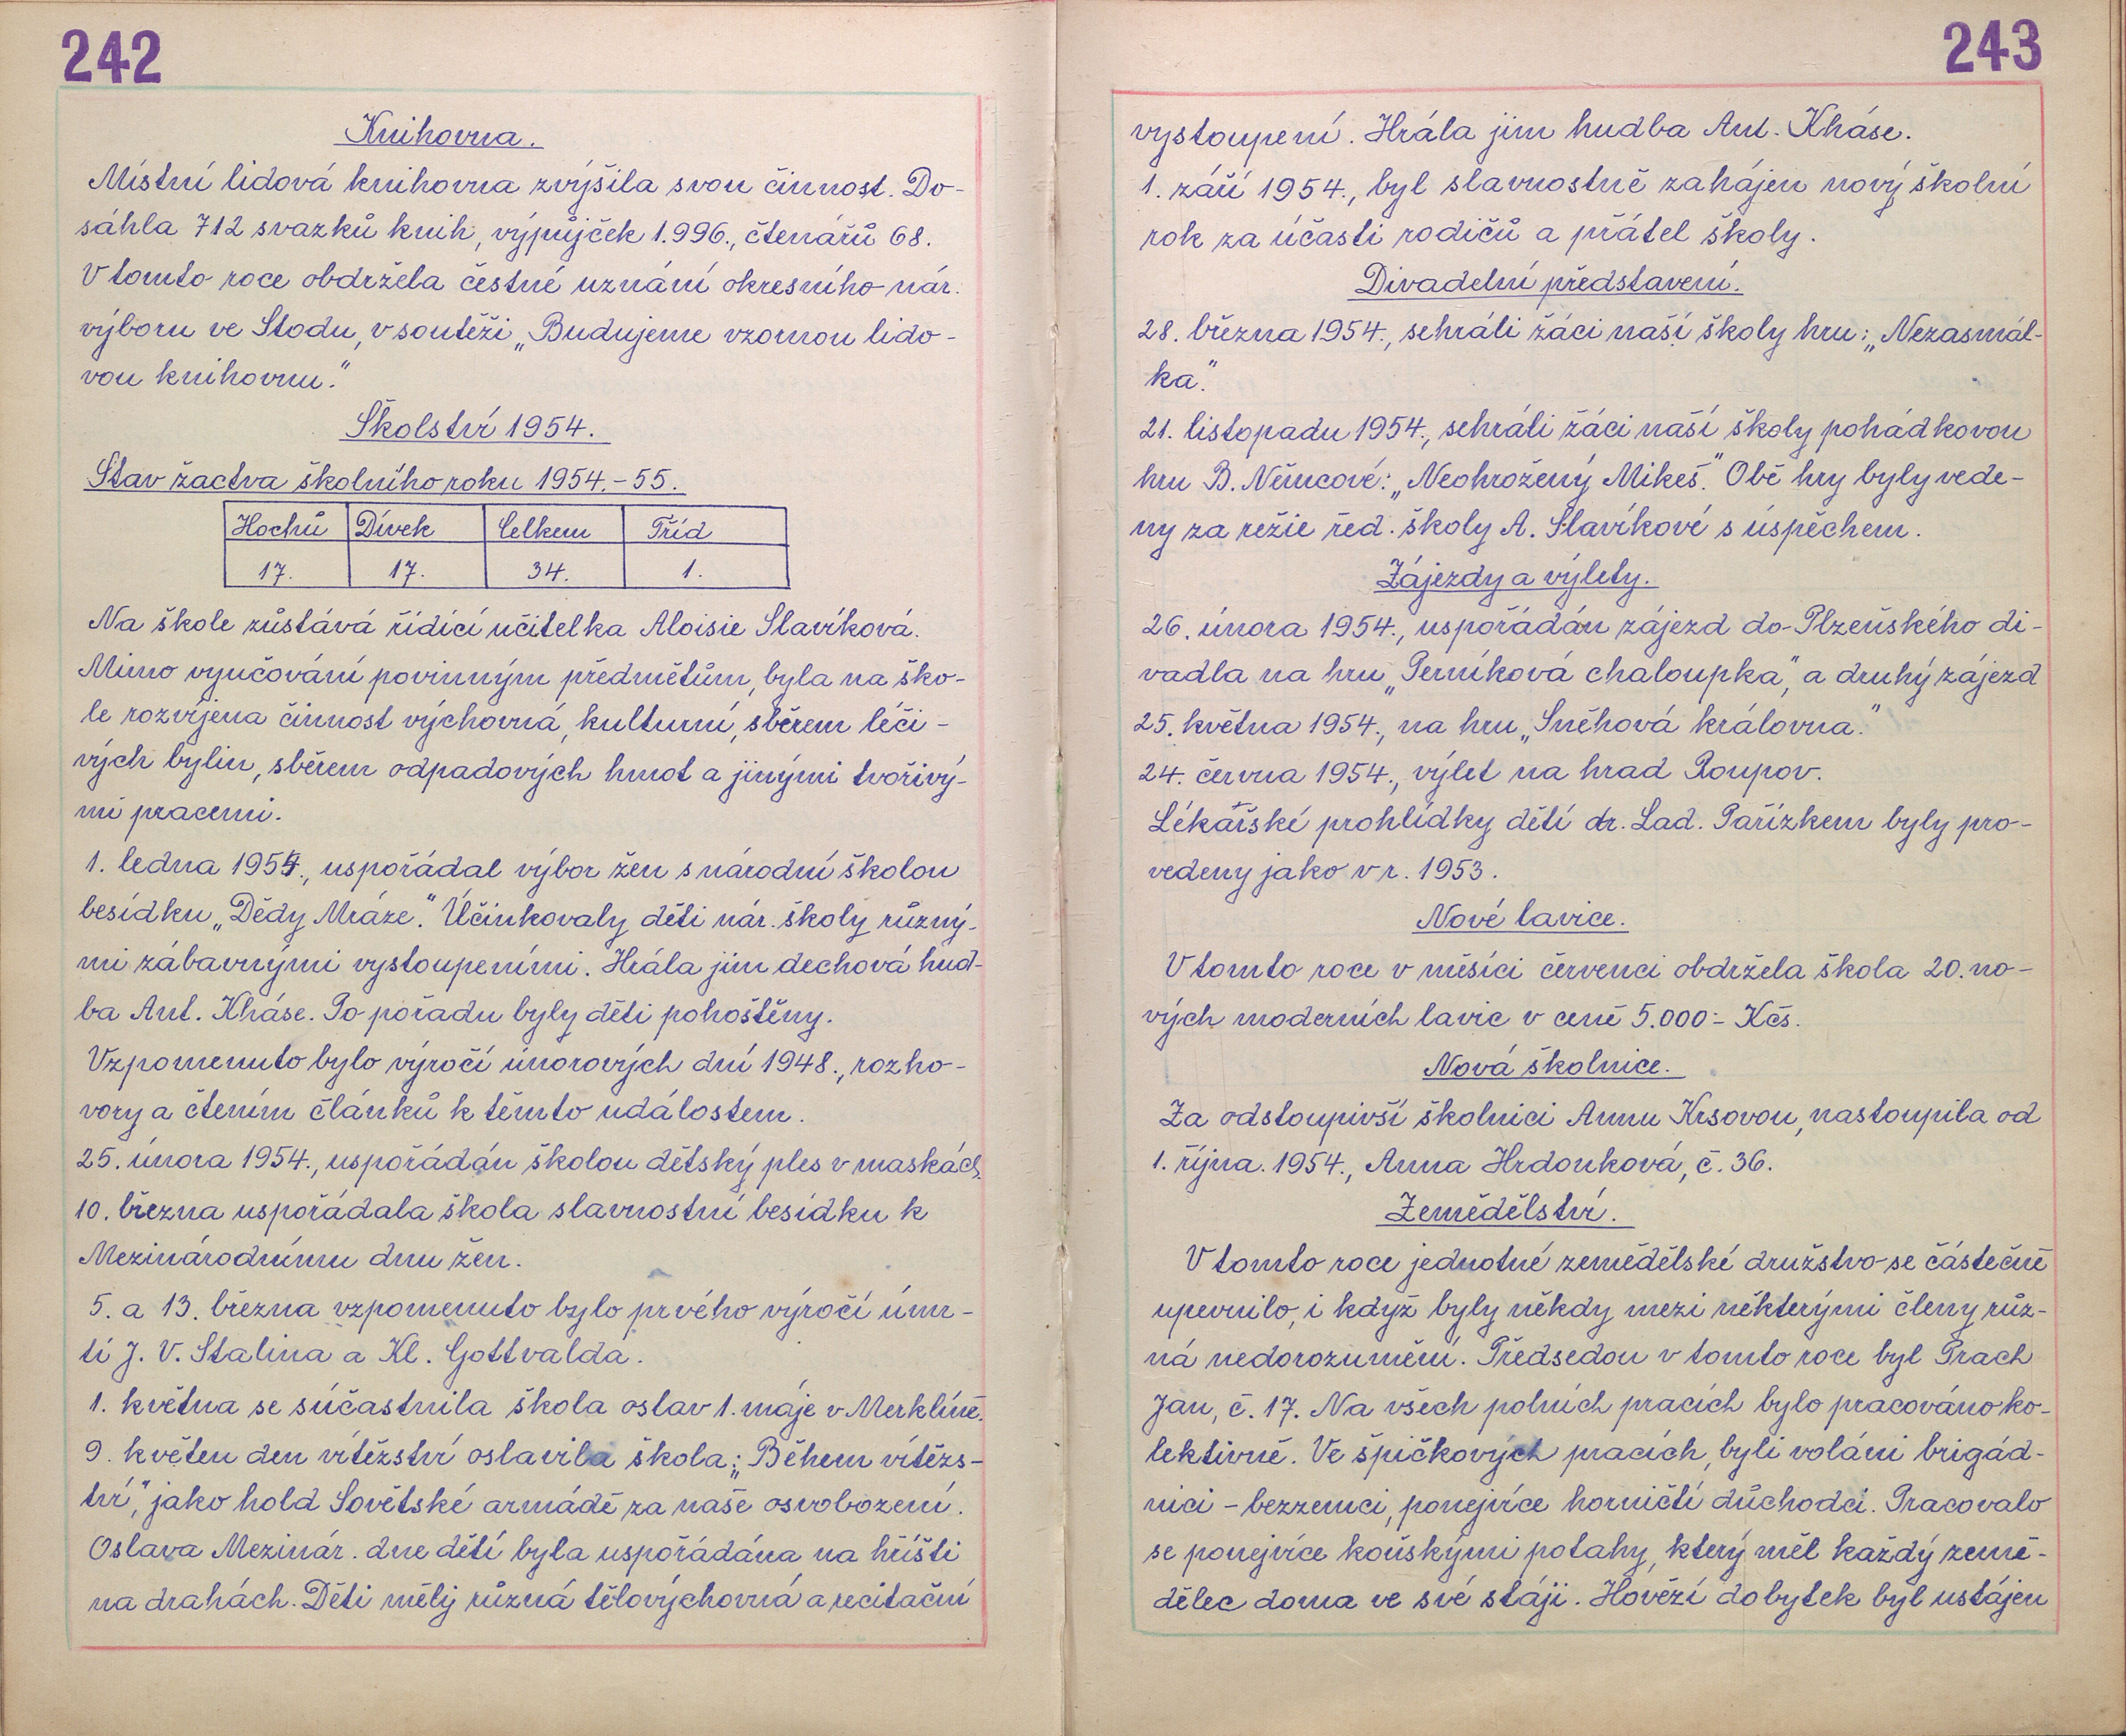 242
Knihovna.
Místní lidová knihovna zvýšila svou činnost. Do-
sáhla 712 svazků knih, výpůjček 1.996., čtenářů 68.
V tomto roce obdržela čestné uznání okresního nár.
výboru ve Stodu, v soutěži „Budujeme vzornou lido-
vou knihovnu."
Školství 1954.
Stav žactva školního roku 1954.-55.
Hochů Dívek Celkem Tříd
17. 17. 34. 1.
Na škole zůstává řídící učitelka Aloisie Slavíková.
Mimo vyučování povinným předmětům, byla na ško-
le rozvíjena činnost výchovná, kulturní, sběrem léči-
vých bylin, sběrem odpadových hmot a jinými tvořivý-
mi pracemi.
1. ledna 1954., uspořádal výbor žen s národní školou
besídku „Dědy Mráze." Účinkovaly děti nár. školy různý-
mi zábavnými vystoupeními. Hrála jim dechová hud-
ba Ant. Kháse. Po pořadu byly děti pohoštěny.
Vzpomenuto bylo výročí únorových dní 1948., rozho-
vory a čtením článků k těmto událostem.
25. února 1954., uspořádán školou dětský ples v maskách.
10. března uspořádala škola slavnostní besídku k
Mezinárodnímu dnu žen.
5. a 13. března vzpomenuto bylo prvého výročí úmr-
tí J. V. Stalina a Kl. Gottvalda.
1. května se súčastnila škola oslav 1. máje v Merklíně.
9. květen den vítězství oslavila škola: „Během vítězs-
tví," jako hold Sovětské armádě za naše osvobození.
Oslava Mezinár. dne dětí byla uspořádána na hřišti
na drahách. Děti měly různá tělovýchovná a recitační
243
vystoupení. Hrála jim hudba Ant. Kháse.
1. září 1954., byl slavnostně zahájen nový školní
rok za účasti rodičů a přátel školy.
Divadelní představení.
28. března 1954., sehráli žáci naší školy hru: „Nezasmál-
ka."
21. listopadu 1954., sehráli žáci naší školy pohádkovou
hru B. Němcové: „Neohrožený Mikeš." Obě hry byly vede-
ny za režie řed. školy A. Slavíkové s úspěchem.
Zájezdy a výlety.
26. února 1954., uspořádán zájezd do Plzeňského di-
vadla na hru „Perníková chaloupka", a druhý zájezd
25. května 1954., na hru „Sněhová královna."
24. června 1954., výlet na hrad Roupov.
Lékařské prohlídky dětí dr. Lad. Pařízkem byly pro-
vedeny jako v r. 1953.
Nové lavice.
V tomto roce v měsíci červenci obdržela škola 20. no-
vých moderních lavic v ceně 5.000:- Kčs.
Nová školnice.
Za odstoupivší školnici Annu Krsovou, nastoupila od
1. října. 1954., Anna Hrdonková, č. 36.
Zemědělství.
V tomto roce jednotné zemědělské družstvo se částečně
upevnilo, i když byly někdy mezi některými členy růz-
ná nedorozumění. Předsedou v tomto roce byl Prach
Jan, č. 17. Na všech polních pracích bylo pracováno ko-
lektivně. Ve špičkových pracích, byli voláni brigád-
níci - bezzemci, ponejvíce horničtí důchodci. Pracovalo
se ponejvíce koňskými potahy, který měl každý země-
dělec doma ve své stáji. Hovězí dobytek byl ustájen